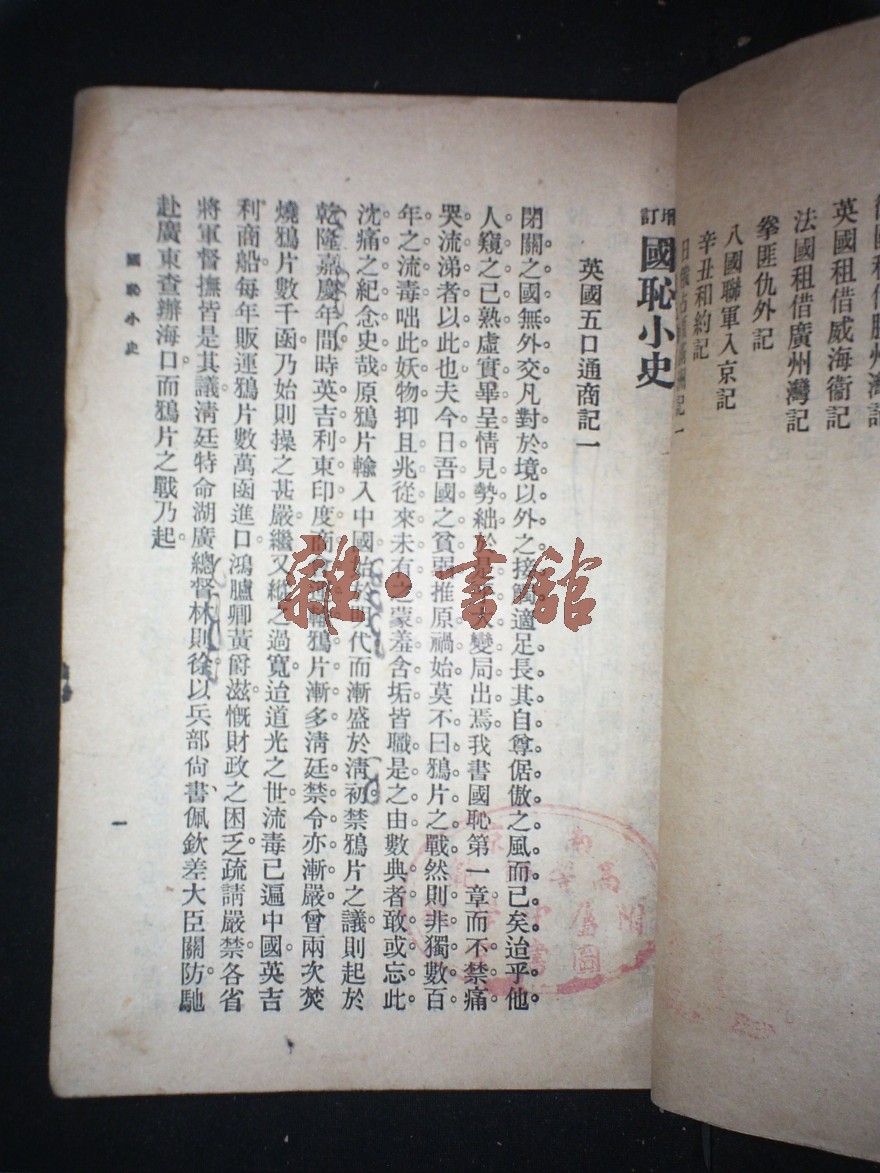 英國租借威海衞記
法國租借廣州灣記
拳匪仇外記
八國聯軍入京記
辛丑和約記
增訂國恥小史
英國五口通商記一
閉關之國無外交凡對於境以外之接觸適足長其自尊倨傲之風而已矣迨乎他
人窺之已熟虛實畢呈情見勢絀於是大變局出焉我書國恥第一章而不禁痛
哭流涕者以此也夫今日吾國之貧弱推原禍始莫不曰鴉片之戰然則非獨數百
年之流毒咄此妖物抑且兆從來未有之蒙羞含垢皆職是之由數典者敢或忘此
沈痛之紀念史哉原鴉片輸入中國始於明代而漸盛於淸初禁鴉片之議則起於
乾隆嘉慶年間時英吉利東印度商鴉片漸多淸廷禁令亦漸嚴曾兩次焚
燒鴉片數千函乃始則操之甚嚴繼又縱之過寬迨道光之世流毒已遍中國英吉
利商船每年販運鴉片數萬函進口鴻臚卿黃爵滋慨財政之困乏疏請嚴禁各省
將軍督撫皆是其議淸廷特命湖廣總督林則徐以兵部尙書佩欽差大臣關防馳
赴廣東查辦海口而鴉片之戰乃起
國恥小史
一
雜·書館